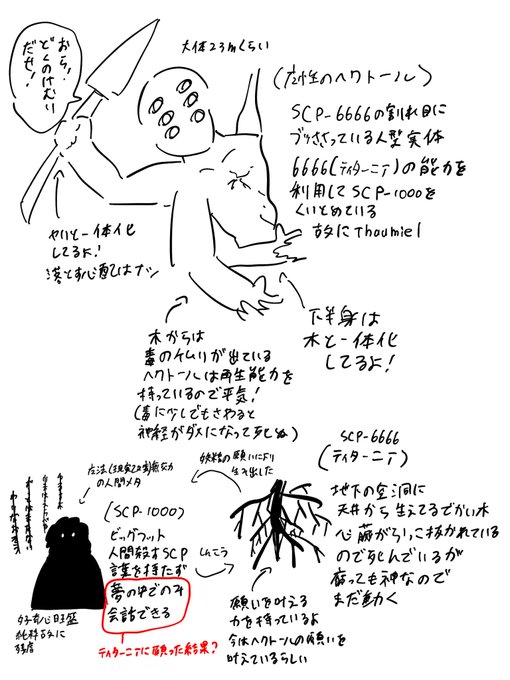 おら!
どくのけむり
だぜ!
大体23mくらい
(左性のヘクトール)
SCP-6666の割れ目に
ブッささっている人型実体
6666(ティターニア)の能力を
利用してSCP-1000を
くいとめている
故にThaumiel
ヤリと一体化
してるよ!
落とす心配はナシ
下半身は
木と一体化
してるよ!
木からは
毒のケムリが出ている
ヘクトールは再生能力を
持っているので平気!
(毒に少しでもさわると
神経がダメになって死ぬ)
SCP-6666
(ティターニア)
地下の空洞に
天井から生えてるでかい木
心臓がひっこ抜かれている
ので死んでいるが
腐っても神なので
まだ動く
願いを叶える
力を持っているよ
今はヘクトールの願いを
叶えているらしい
妖精の願いにより
生み出した
の人間メタ
(SCP-1000)
ビッグフット
人間殺すSCP
言葉を持たず
夢の中でのみ
会話できる
しんこう
ティターニアに願った結果?
好奇心旺盛
純粋故に
残虐